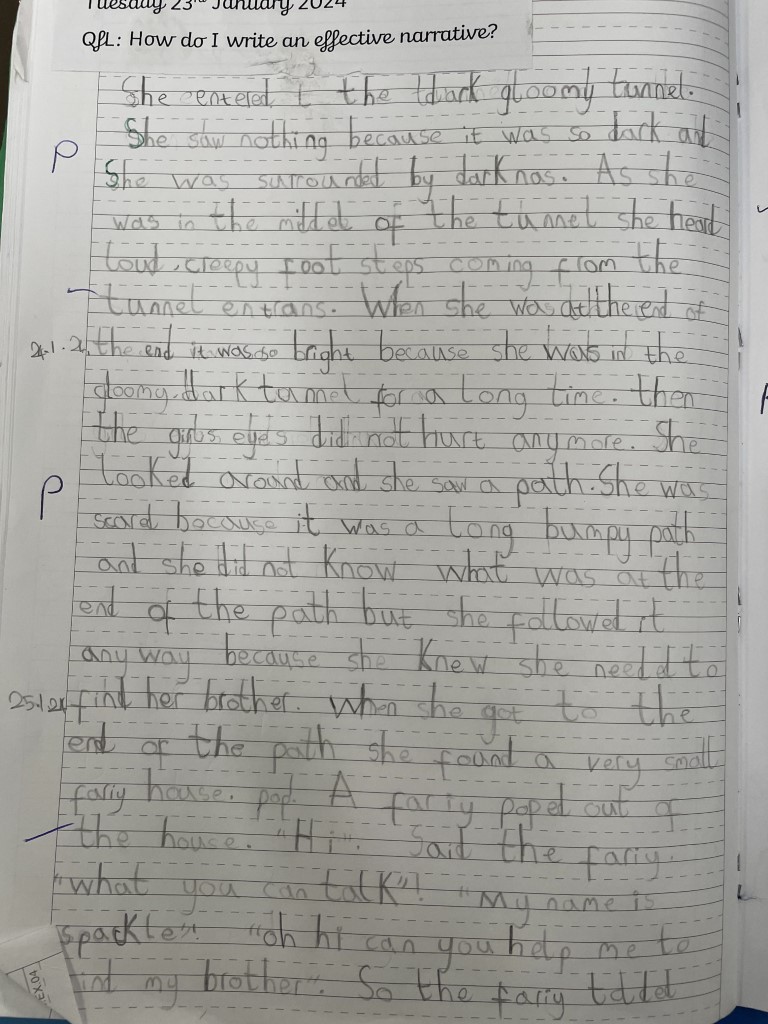 Tuesday 23rd January 2024
QfL: How do I write an effective narrative?
She entered t the dark gloomy tunnel.
She saw nothing because it was so dark and
P
She was surrounded by darknas. As she
was in the middel of the tunnel she heard
loud, creepy foot steps coming from the
tunnel entrans. When she was at the end of
24.1.24 the end it was so bright because she was in the
gloomy, dark tunnel for a long time. then
the girls eyes did not hurt any more. She
looked around and she saw a path. She was
P
scard because it was a long bumpy path
and she did not know what was at the
end of the path but she followed it
any way because she knew she needed to
25.1.24 find her brother. When she got to the
end of the path she found a very small
fariy house. pop. A fariy poped out of
the house. "Hi". Said the fariy.
"what you can talk"! "My name is
spackle"! "oh hi can you help me to
find my brother". So the fariy
EX.04